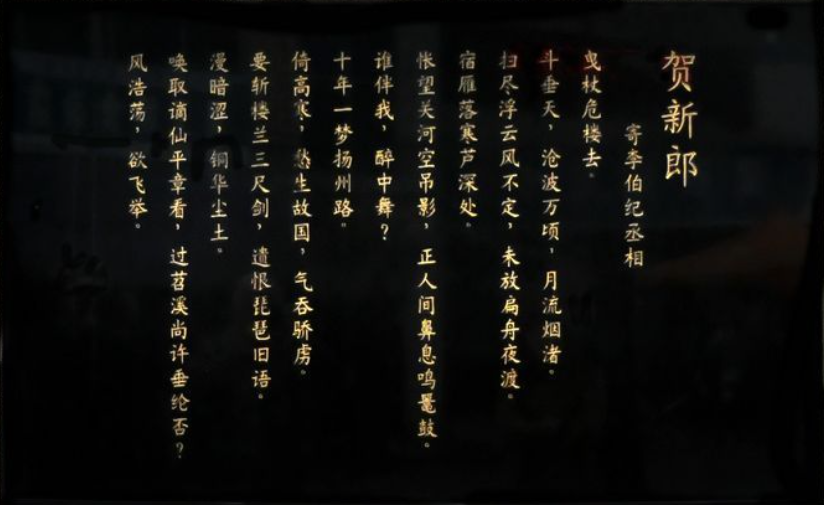 贺新郎
寄李伯纪丞相
曳杖危楼去。
斗垂天，沧波万顷，月流烟渚。
扫尽浮云风不定，未放扁舟夜渡。
宿雁落寒芦深处。
怅望关河空吊影，正人间鼻息鸣鼍鼓。
谁伴我，醉中舞？
十年一梦扬州路。
倚高寒，愁生故国，气吞骄虏。
要斩楼兰三尺剑，遗恨琵琶旧语。
漫暗涩，铜华尘土。
唤取谪仙平章看，过苕溪尚许垂纶否？
风浩荡，欲飞举。